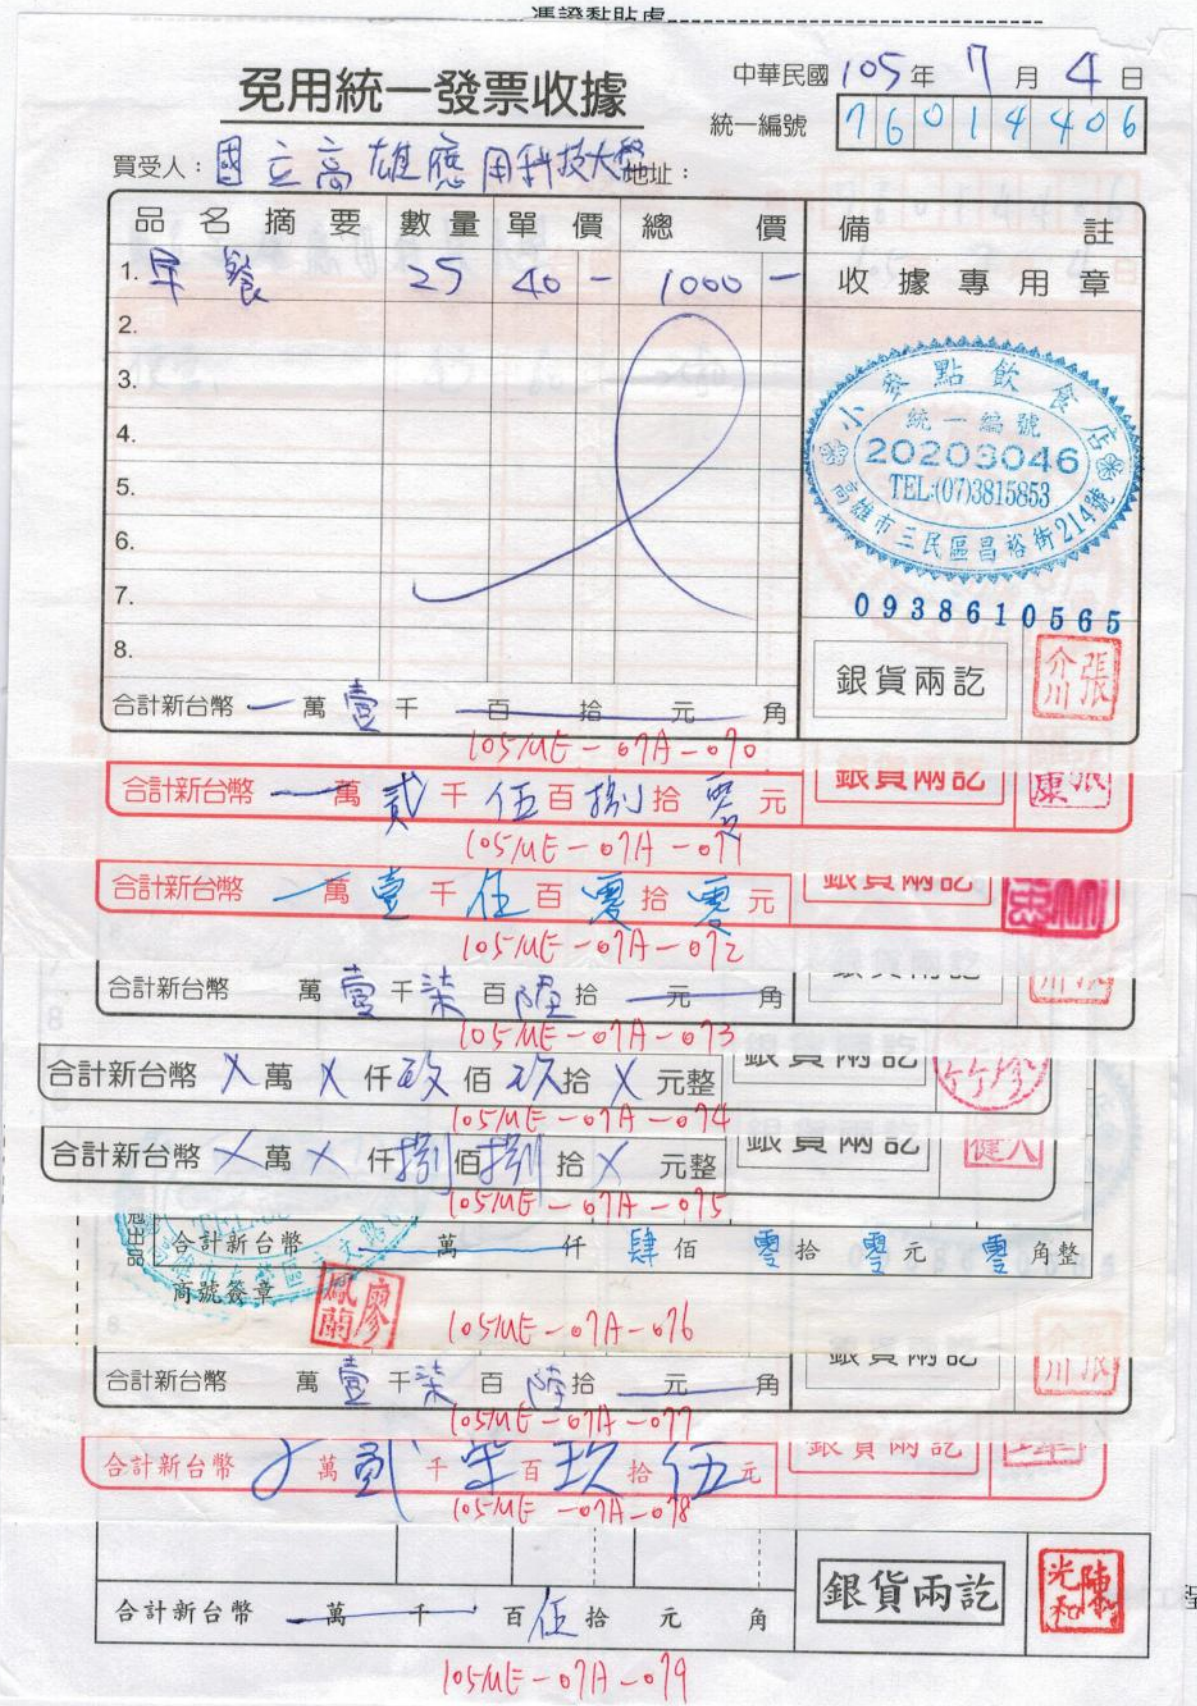 憑證黏貼處
免用統一發票收據
中華民國 105 年 7 月 4 日
統一編號 76014406
買受人：國立高雄應用科技大學 地址：
品名摘要 數量 單價 總價 備註
1. 早餐 25 40 - 1000 - 收據專用章
2.
3.
4.
5.
6.
7.
8.
小麥點飲食店
統一編號
20203046
TEL:(07)3815853
高雄市三民區昌裕街214號
0938610565
銀貨兩訖 張介川
合計新台幣 一萬壹千 百 拾 元 角
105ME-07A-070
合計新台幣 一萬貳千伍百捌拾零元 銀貨兩訖
105ME-07A-071
合計新台幣 一萬壹千伍百零拾零元 銀貨兩訖
105ME-07A-072
合計新台幣 萬壹千柒百陸拾 元 角 銀貨兩訖
105ME-07A-073
合計新台幣 X萬X仟玖佰玖拾X元整 銀貨兩訖
105ME-07A-074
合計新台幣 X萬X仟捌佰捌拾X元整 銀貨兩訖
105ME-07A-075
合計新台幣 萬 仟肆佰零拾零元零角整
商號簽章 廖鳳蘭
105ME-07A-076
合計新台幣 萬壹千柒百陸拾 元 角 銀貨兩訖
105ME-07A-077
合計新台幣 萬貳千柒百玖拾伍元 銀貨兩訖
105ME-07A-078
合計新台幣 一萬 千 百伍拾 元 角 銀貨兩訖 陳光和
105ME-07A-079